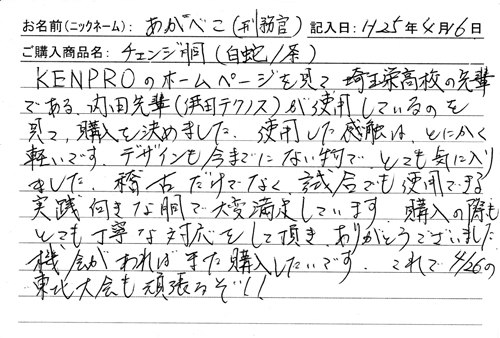 お名前(ニックネーム): あかべこ(刑務官) 記入日: H25年4月16日
ご購入商品名: チェンジ胴(白蛇/茶)
KENPROのホームページを見て 埼玉栄高校の先輩
である、内田先輩(伊田テクノス)が使用しているのを
見て、購入を決めました。 使用した感触は、とにかく
軽いです。デザインも今までにない物で、とても気に入り
ました。稽古だけでなく、試合でも使用できる
実践向きな胴で大変満足しています。購入の際も
とても丁寧な対応をして頂き、ありがとうございました。
機会があればまた購入したいです。 これで4/26の
東北大会も頑張るぞ!!